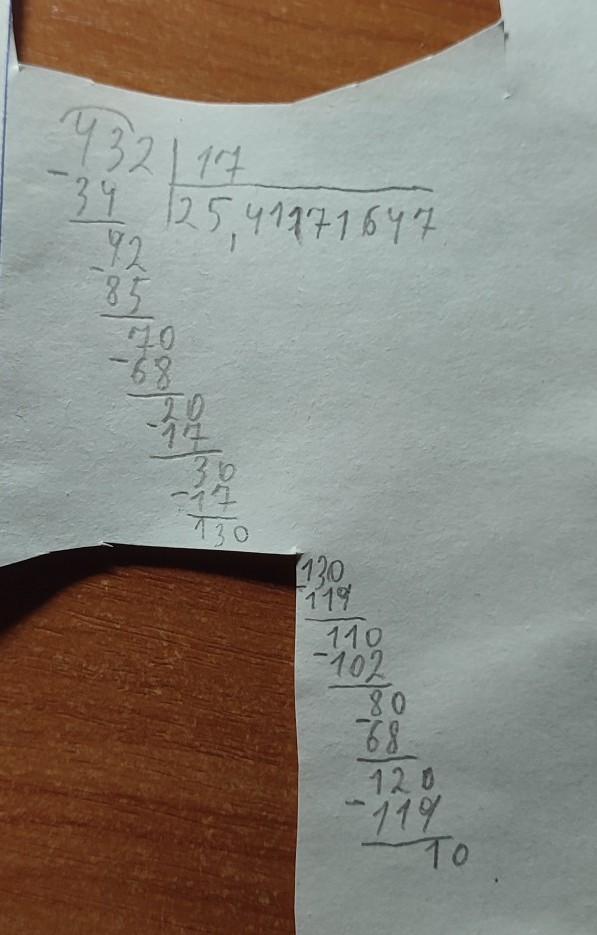 432 | 17
- 34
25,41171647
92
- 85
70
- 68
20
- 17
30
- 17
130
130
- 119
110
- 102
80
- 68
120
- 119
10